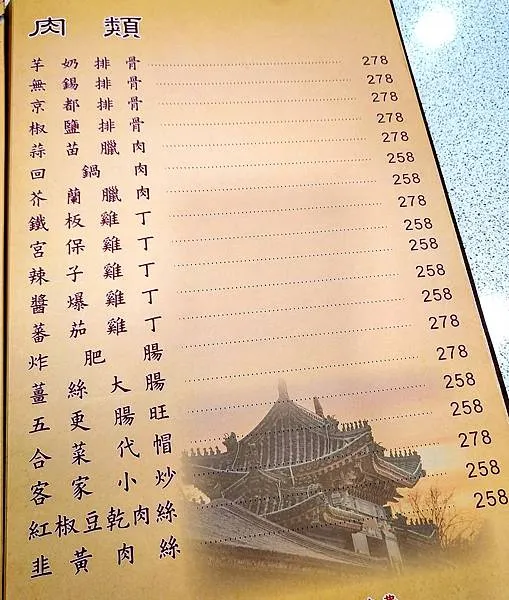 肉類
芋奶排骨 278
無錫排骨 278
京都排骨 278
椒鹽排骨 278
蒜苗臘肉 278
回鍋肉 258
芥蘭臘肉 258
鐵板雞丁 278
宮保雞丁 258
辣子雞丁 258
醬爆雞丁 258
蕃茄雞丁 258
炸肥腸 278
薑絲大腸 278
五更腸旺 258
合菜代帽 258
客家小炒 278
紅椒豆乾肉絲 258
韭黃肉絲 258